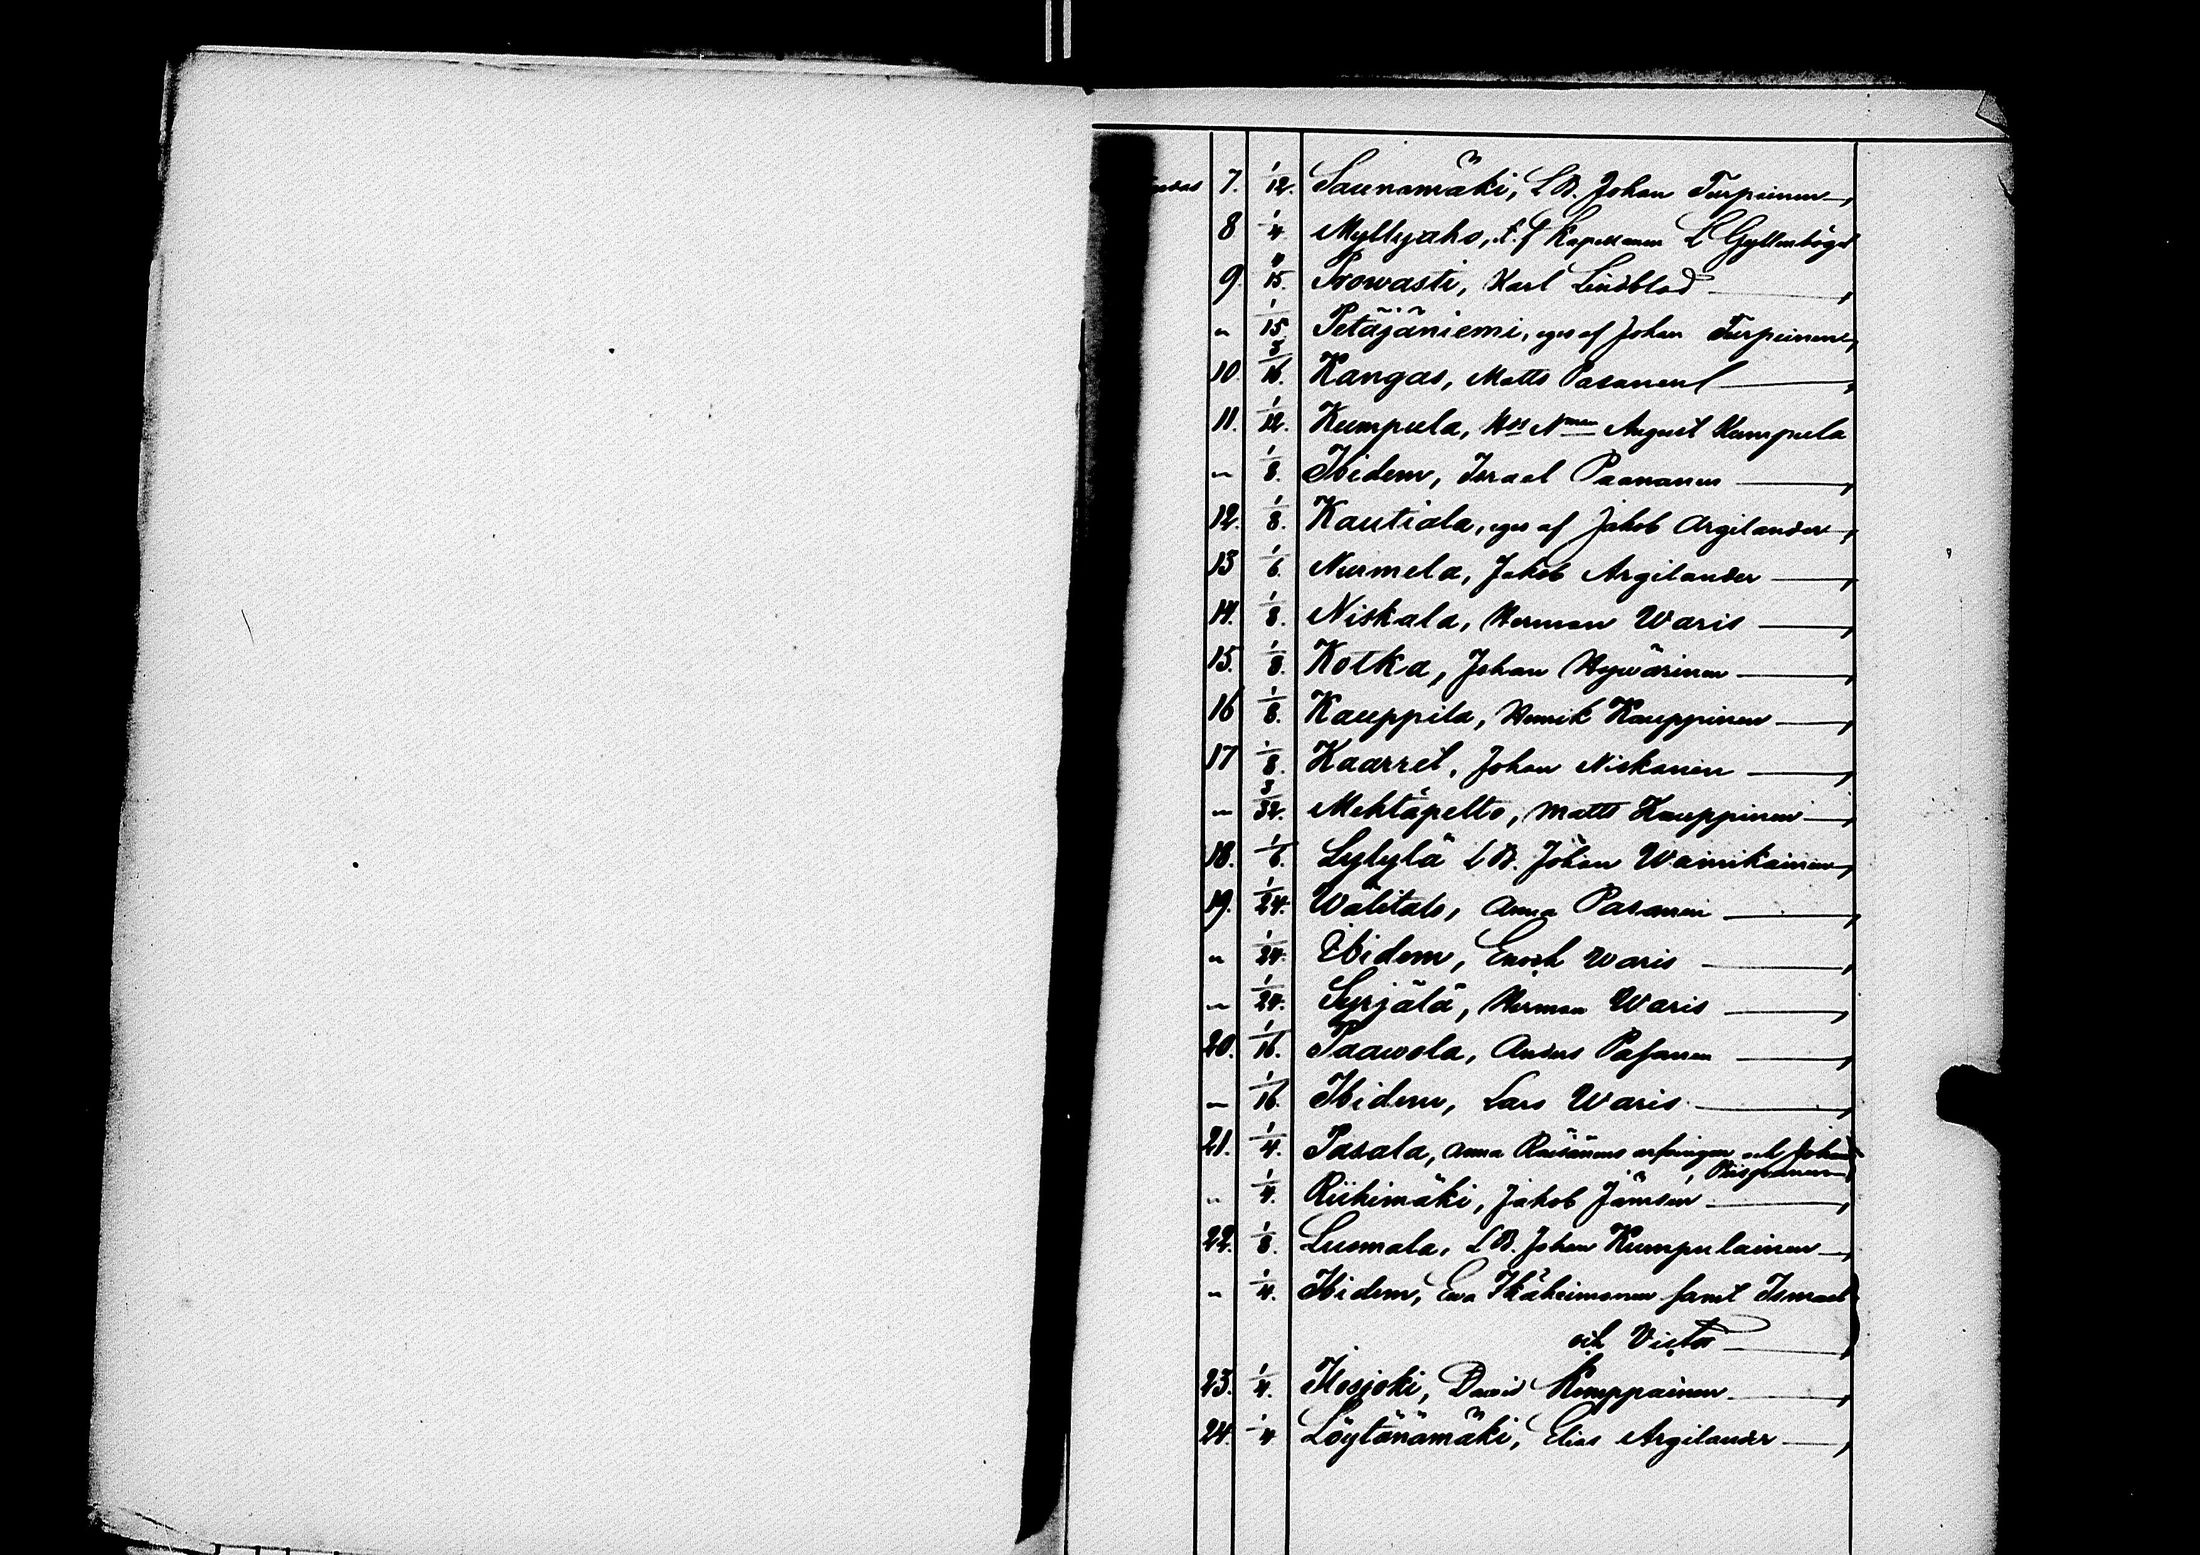 7. 1/12. Saunamäki, LB. Johan Turpeinen
8 1/4 Myllyaho, t. f Kapellanen L Gyllenbögel
9. 4/15. Prowasti, Karl Lindblad
" 1/15 Petäjäniemi, eges af Johan Turpeinen
10. 3/16. Kangas, Matts Pasanen
11. 1/12. Kumpula, Hos Nmen August Kumpula
" 1/8. Ibidem, Israel Paananen
12. 1/8. Kautiala, eges af Jakob Argilander
13 1/6. Nurmela, Jakob Argilander
14. 1/8. Niskala, Herman Waris
15. 1/8. Kotka, Johan Hywärinen
16 1/8. Kauppila, Henrik Kauppinen
17 1/8. Kaarret, Johan Niskanen
" 3/32. Mehtäpelto, Matts Kauppinen
18. 1/6. Lylylä LB. Johan Wainikainen
19. 1/24. Wälitalo, Anna Pasanen
" 1/24. Ibidem, Enoch Waris
" 1/24. Syrjälä, Herman Waris
20. 1/16. Paawola, Anders Pasanen
" 1/16. Ibidem, Lars Waris
21. 1/4. Pasala, Anna Räisänens arfvingar och Johan
Piispanen
" 1/4. Riihimäki, Jakob Jämsen
22. 1/8. Luomala, LB. Johan Kumpulainen
" 1/4. Ibidem, Eva Ikäheimonen samt Ismael
och Victor
23. 1/4. Ilosjoki, David Kemppainen
24. 1/4 Löytänämäki, Elias Argilander